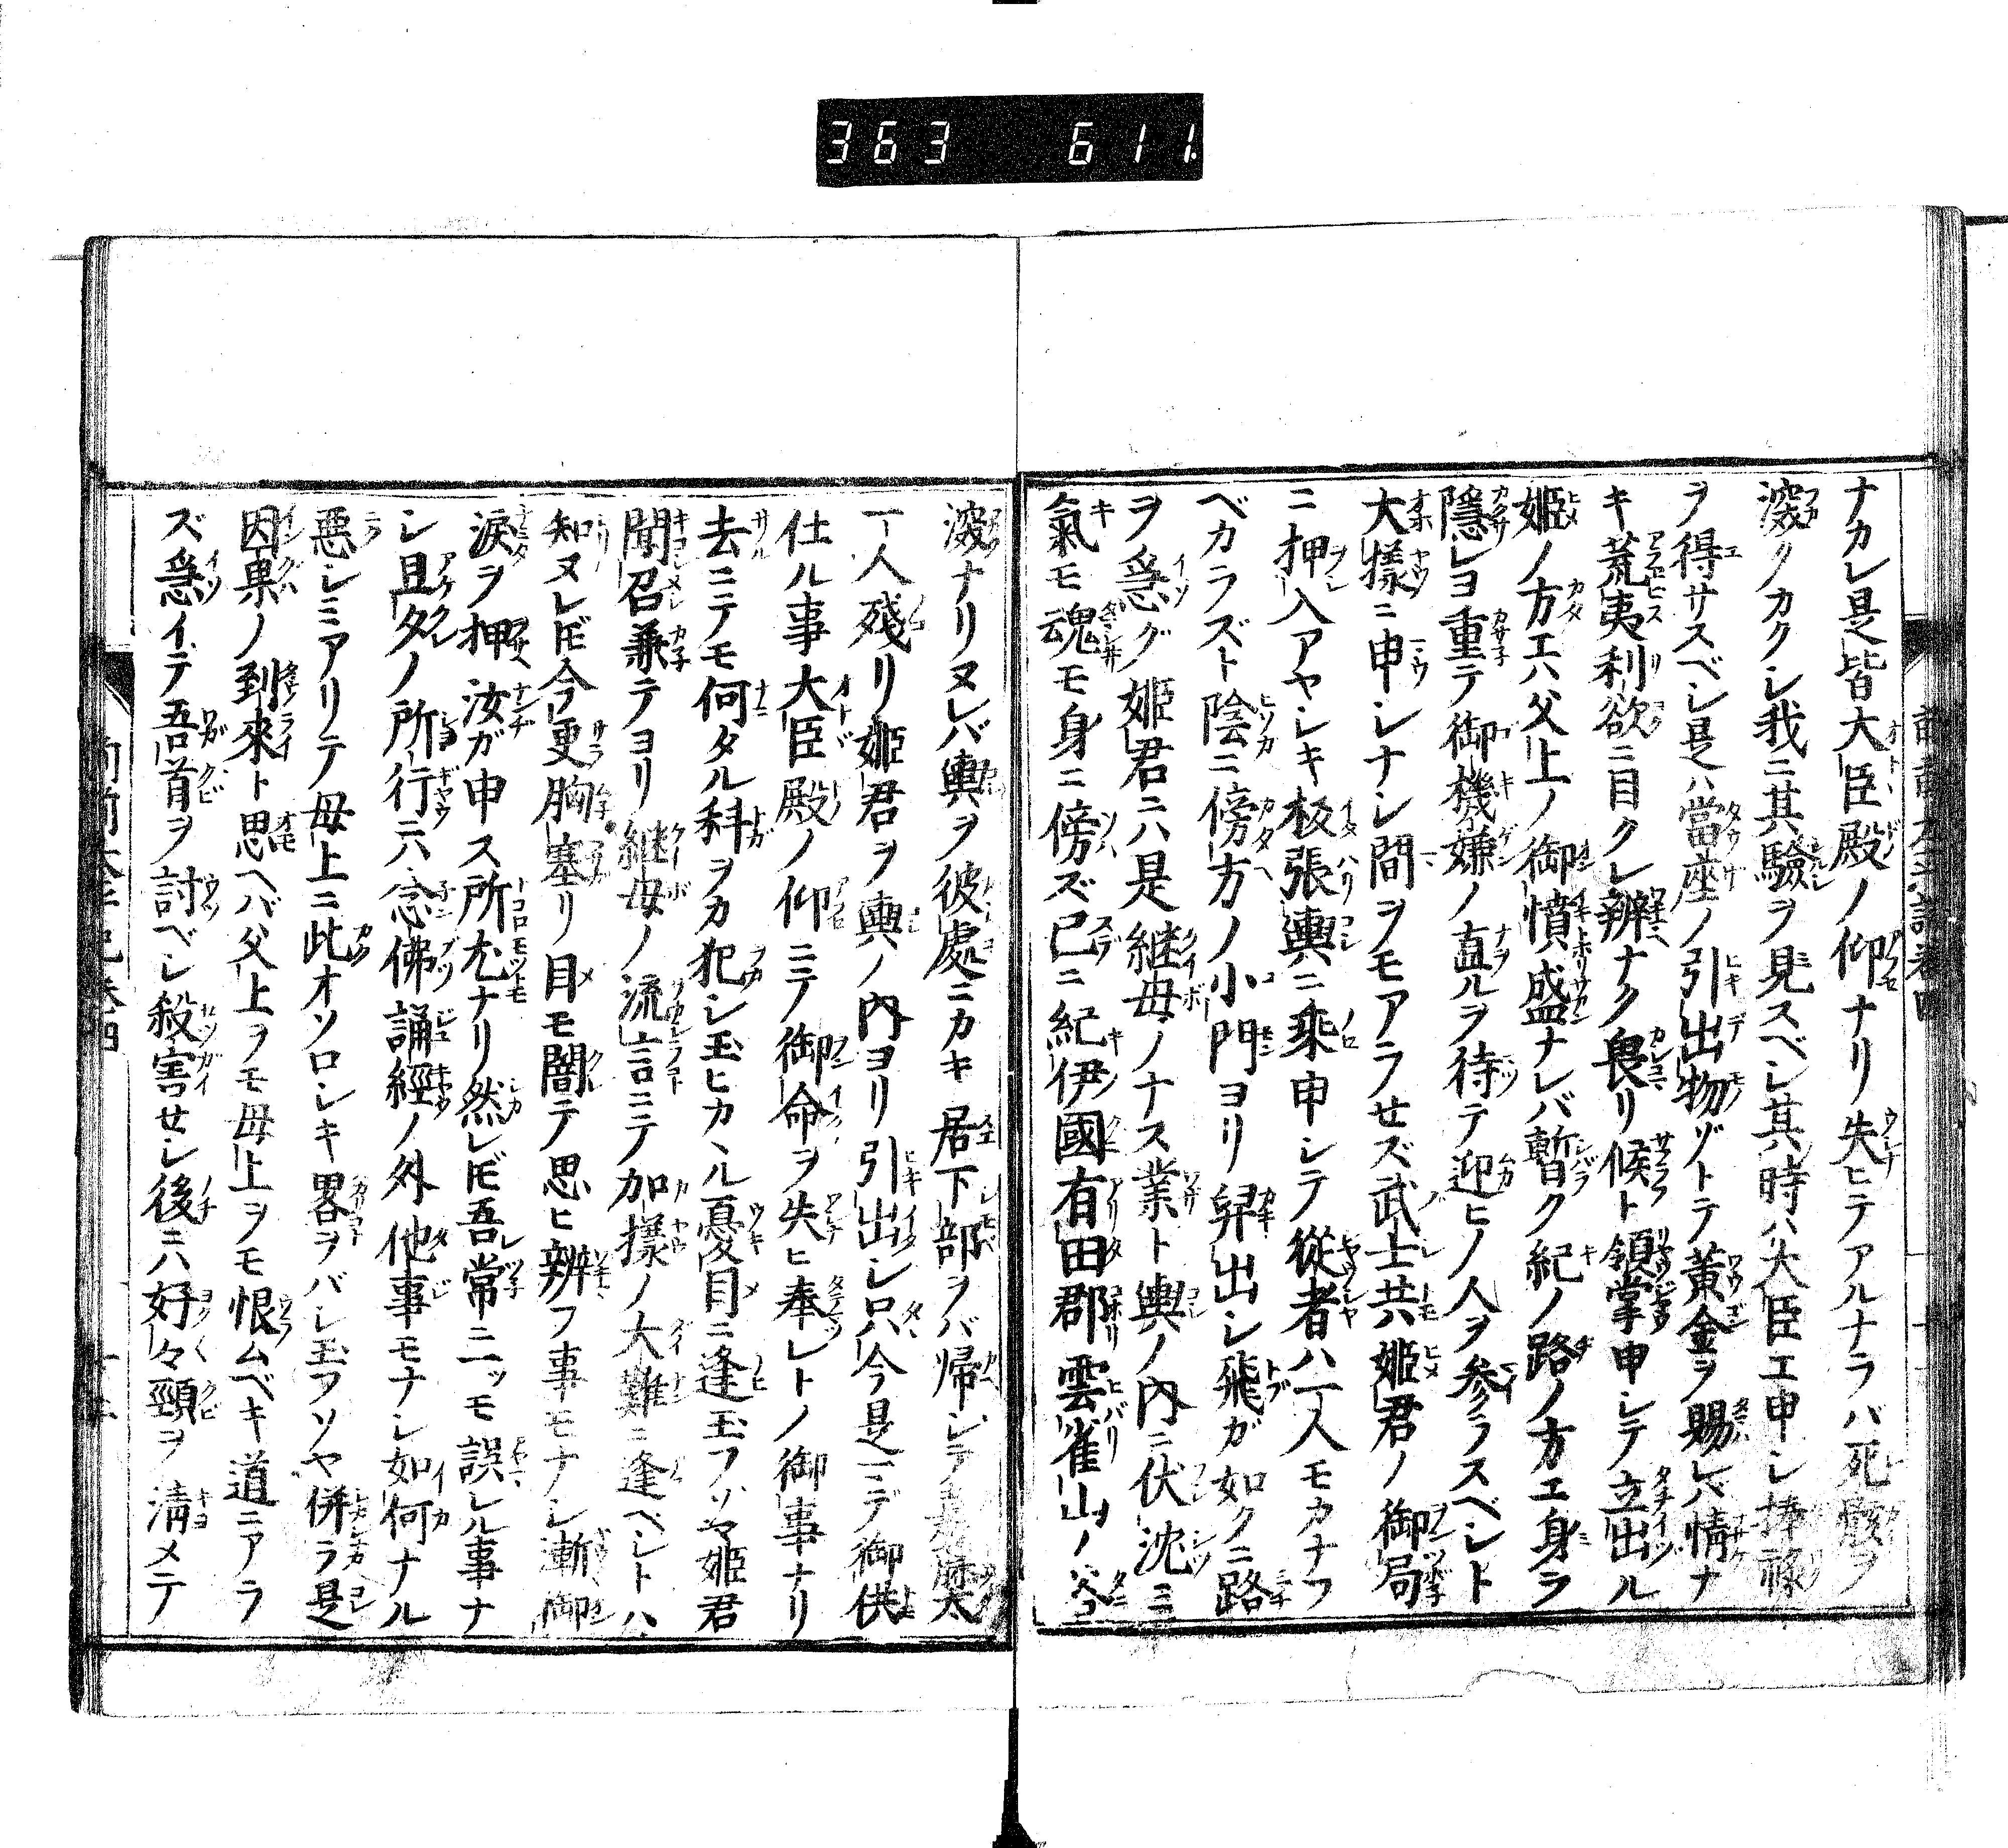 363 611
ナカレ是皆大臣殿ノ仰ナリ失ヒテアルナラバ死骸ヲ
深クカクシ我ニ其驗ヲ見スベシ其時ハ大臣エ申シ捧祿
ヲ得サスベシ是ハ當座ノ引出物ゾトテ黃金ヲ賜レバ情ナ
キ荒夷利欲ニ目クレ辨ナク畏リ候ト領掌申シテ立出ル
姬ノ方エハ父上ノ御憤盛ナレバ暫ク紀ノ路ノ方エ身ヲ
隱シヨ重テ御機嫌ノ直ルヲ待テ迎ヒノ人ヲ参ラスベシト
大樣ニ申シナシ間ヲモアラセズ武士共姬君ノ御局
ニ押入アヤシキ板張輿ニ乘申シテ從者ハ一人モカナフ
ベカラズト陰ニ傍方ノ小門ヨリ舁出シ飛ガ如クニ路
ヲ急グ姬君ニハ是繼母ノナス業ト輿ノ內ニ伏沈ミ
氣モ魂モ身ニ傍ズ已ニ紀伊國有田郡雲雀山ノ谷
深ナリヌレバ輿ヲ彼處ニカキ居下部ヲバ帰シテ
一人殘リ姬君ヲ輿ノ內ヨリ引出シ只今是ニテ御供
仕ル事大臣殿ノ仰ニテ御命ヲ失ヒ奉レトノ御事ナリ
去ニテモ何タル科ヲカ犯シ玉ヒカヽル憂目ニ逢玉フソヤ姬君
聞召兼テヨリ繼母ノ流言ニテ加樣ノ大難ニ逢ベシトハ
知ヌレ𪜈今更胸塞リ目モ闇テ思ヒ辨フ事モナシ漸御
淚ヲ押汝ガ申ス所尤ナリ然レ𪜈吾常ニ一ツモ誤ル事ナ
シ旦夕ノ所行ニハ念佛誦經ノ外他事モナシ如何ナル
惡シミアリテ母上ニ此オソロシキ畧ヲバシ玉フソヤ併ラ是
因果ノ到來ト思ヘバ父上ヲモ母上ヲモ恨ムベキ道ニアラ
ズ急イデ吾首ヲ討ベシ殺害セシ後ニハ好々頸ヲ淸メテ